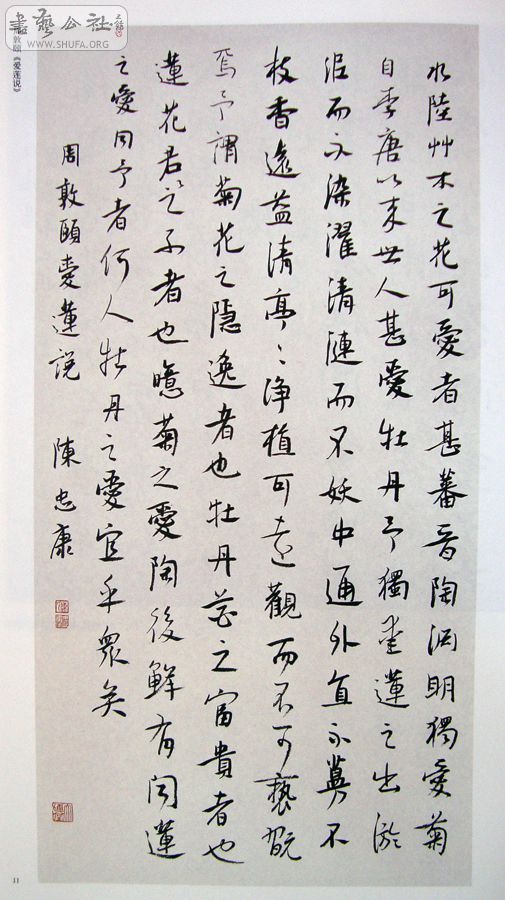 水陸艸木之花可愛者甚蕃晉陶淵明獨愛菊
自李唐以来世人甚愛牡丹予獨愛蓮之出淤
泥而不染濯清漣而不妖中通外直不蔓不
枝香遠益清亭〻淨植可遠觀而不可褻翫
焉予謂菊花之隱逸者也牡丹花之富貴者也
蓮花君之子者也噫菊之愛陶後鮮有聞蓮
之愛同予者何人牡丹之愛宜乎眾矣
周敦頤愛蓮説 陳忠康
敦頤《爱莲说》
書藝公社
WWW.SHUFA.ORG
11